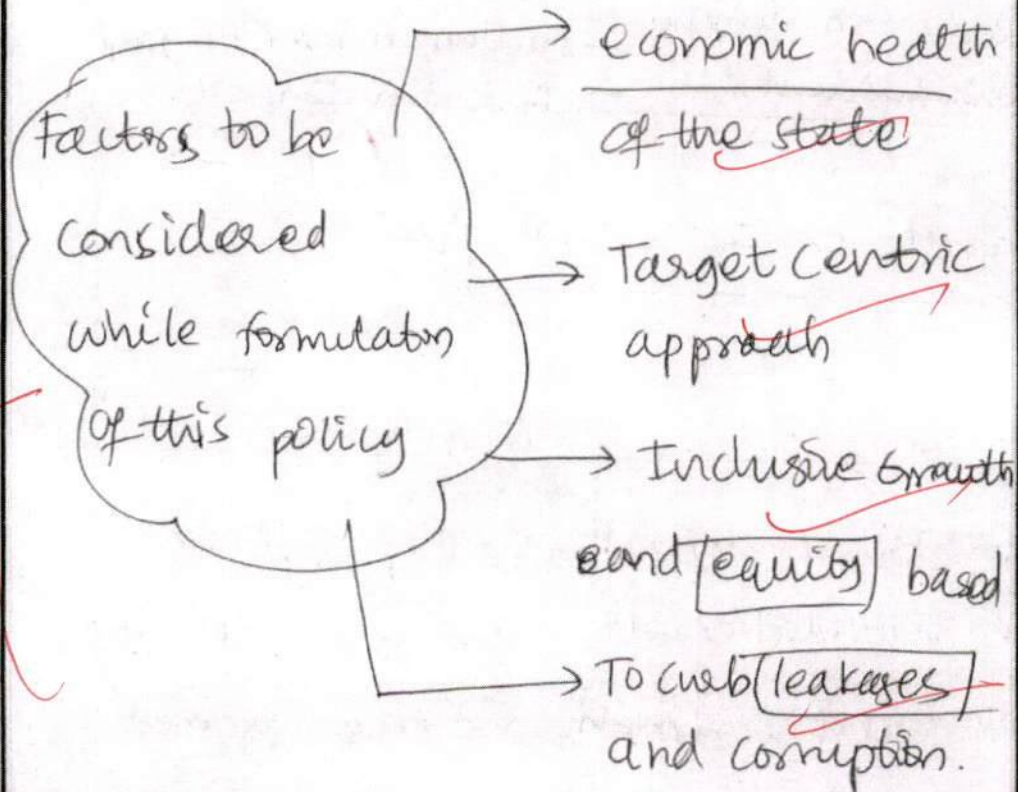 Factors to be
considered
while formulaton
of this policy
economic health
of the state
Target centric
approah
Inclusive Growth
and equity based
To curb leakages
and corruption.